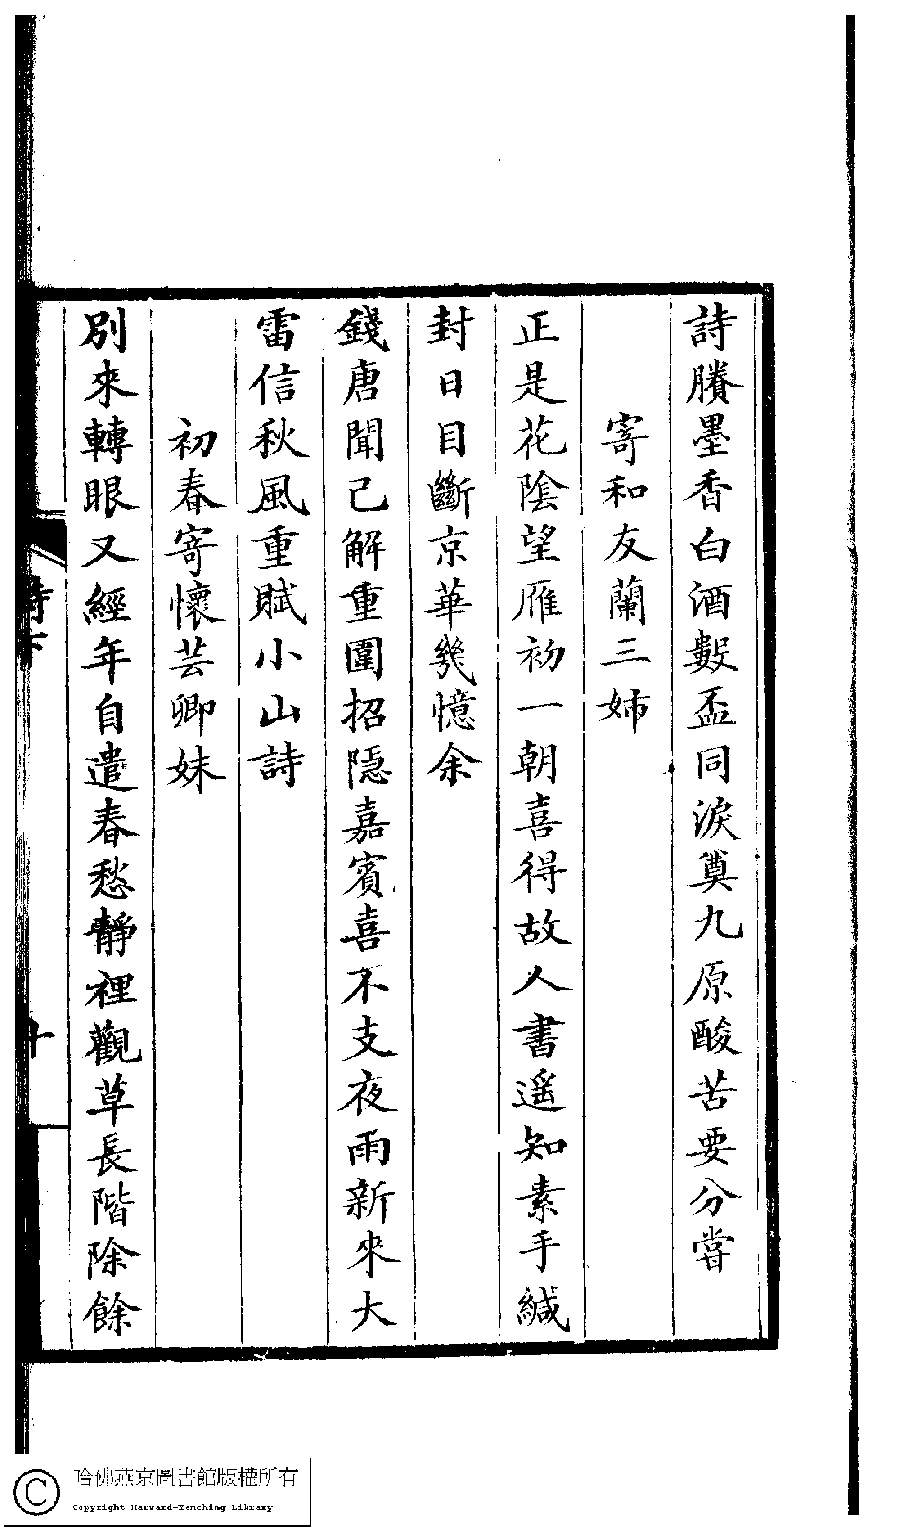 詩賸墨香白酒數盃同淚奠九原酸苦要分嘗
寄和友蘭三姊
正是花陰望雁初一朝喜得故人書遥知素手緘
封日目斷京華幾憶余
錢唐聞已解重圍招隱嘉賓喜不支夜雨新來大
雷信秋風重賦小山詩
初春寄懷芸卿妹
別來轉眼又經年自遣春愁靜裡觀草長階除餘
哈佛燕京圖書館版權所有
Copyright Harvard-Yenching Library